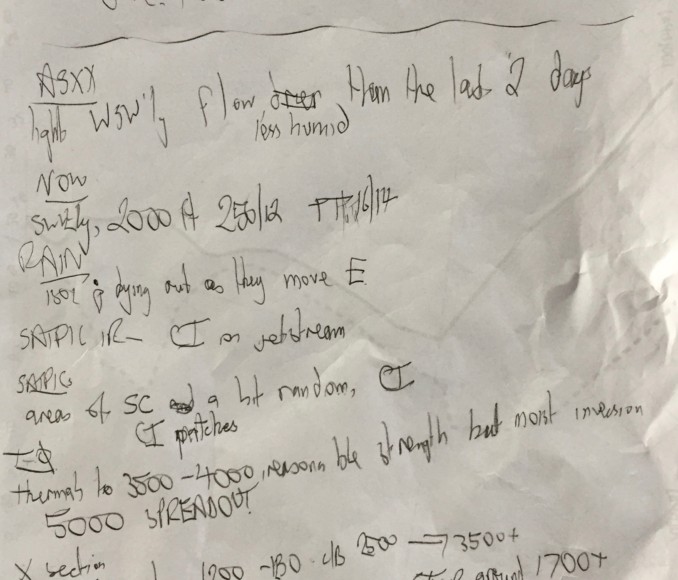 ASXX
light WSW'ly flow than the last 2 days
less humid
NOW
SW'ly, 2000 ft 250/12 16/14
RAIN
ISOL ; dying out as they move E
SATPIC IR - CI on jetstream
SATPIC
areas of SC a bit random, CI
CI patches
T-Φ
thermals to 3500-4000, reasonable strength but moist inversion
5000 SPREADOUT
X section
1200 - 130 2500 → 3500+
around 1700+